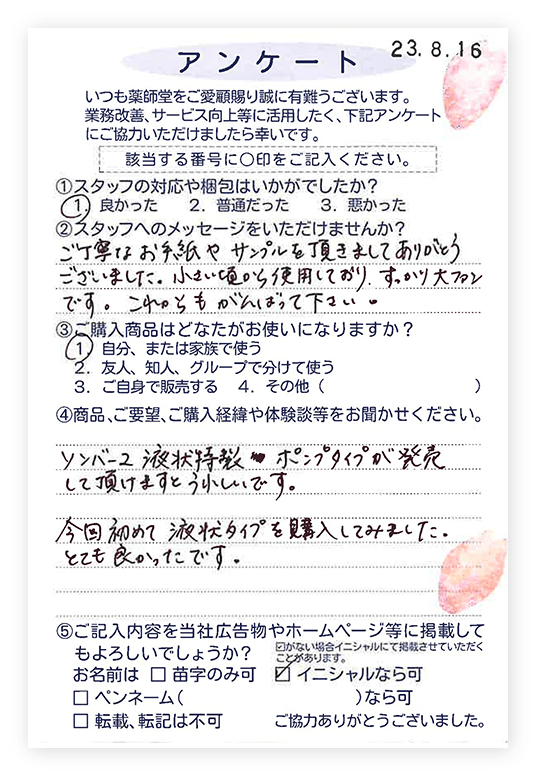 アンケート
23.8.16
いつも薬師堂をご愛顧賜り誠に有難うございます。
業務改善、サービス向上等に活用したく、下記アンケート
にご協力いただけましたら幸いです。
該当する番号に〇印をご記入ください。
①スタッフの対応や梱包はいかがでしたか？
1. 良かった 2. 普通だった 3. 悪かった
②スタッフへのメッセージをいただけませんか？
ご丁寧なお手紙やサンプルを頂きましてありがとう
ございました。小さい頃から使用しており、すっかり大ファン
です。これからもがんばって下さい。
③ご購入商品はどなたがお使いになりますか？
1. 自分、または家族で使う
2. 友人、知人、グループで分けて使う
3. ご自身で販売する 4. その他（ ）
④商品、ご要望、ご購入経緯や体験談等をお聞かせください。
ソンバーユ 液状特製 ポンプタイプが発売
して頂けますとうれしいです。
今回初めて液状タイプを購入してみました。
とても良かったです。
⑤ご記入内容を当社広告物やホームページ等に掲載して
もよろしいでしょうか？
☑がない場合イニシャルにて掲載させていただく
ことがあります。
お名前は □ 苗字のみ可 ☑ イニシャルなら可
□ ペンネーム（ ）なら可
□ 転載、転記は不可 ご協力ありがとうございました。